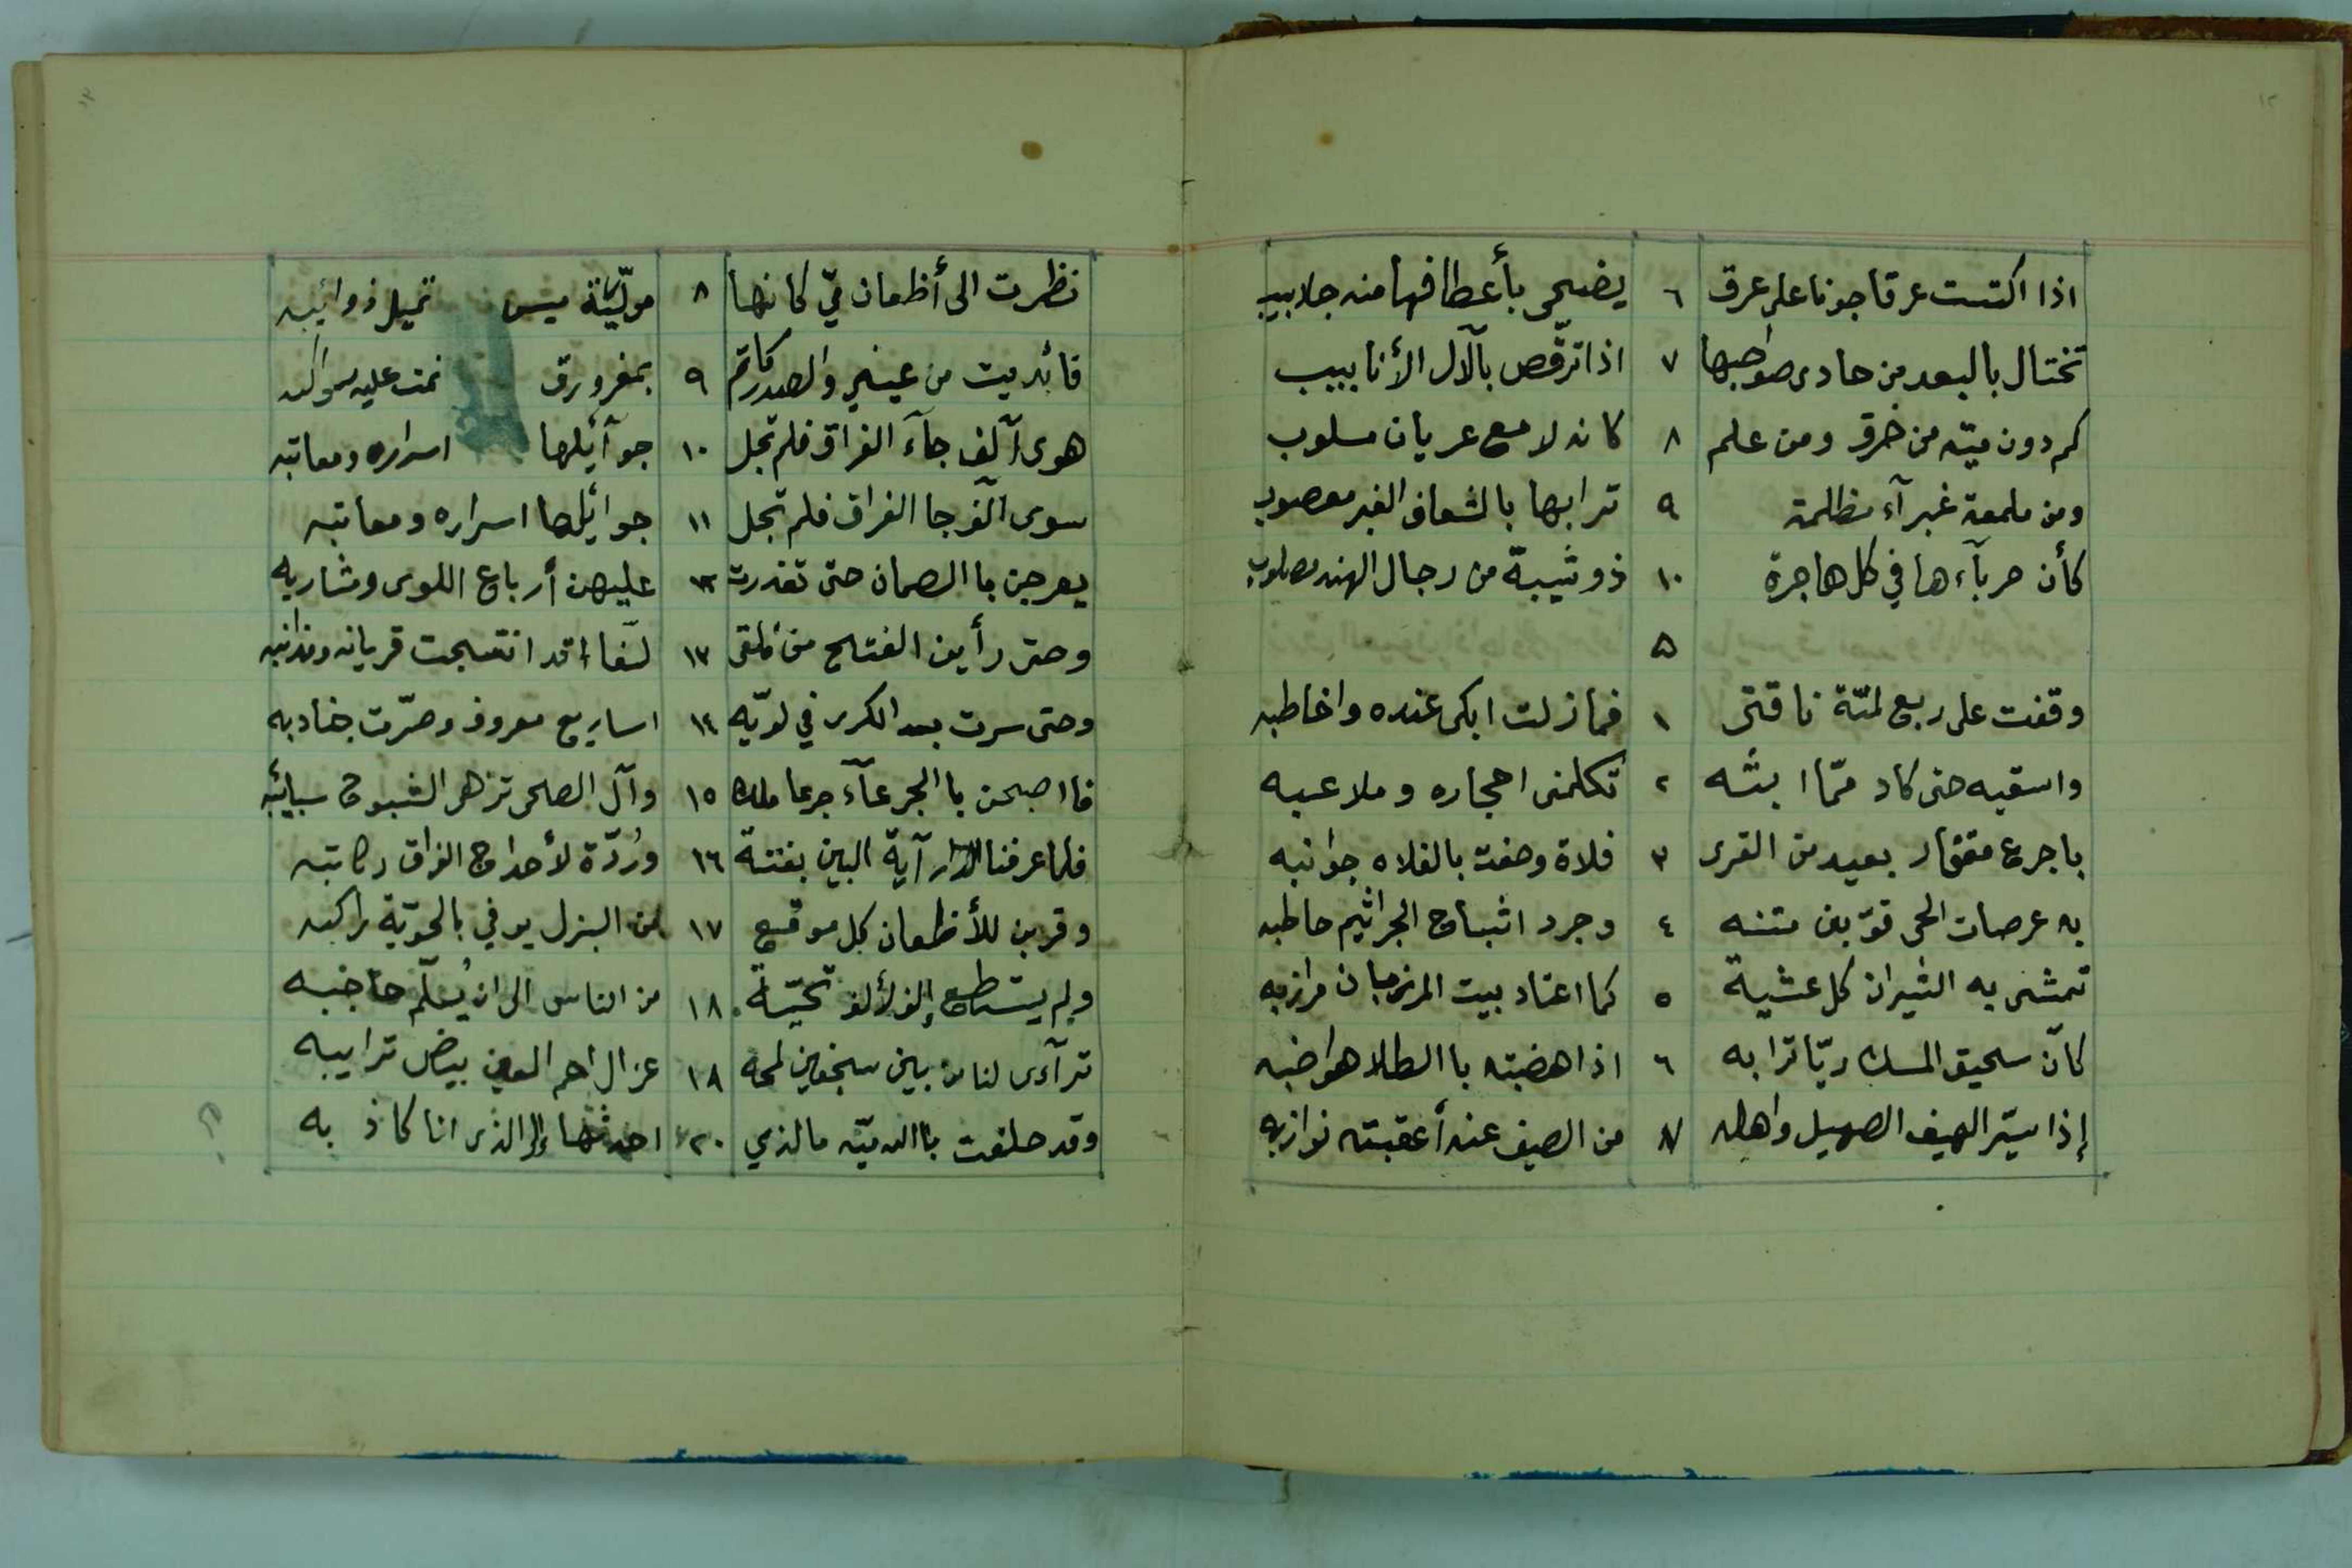 ١٢
اذا اكتست عرقا جونا على عرق ٦ يضحى بأعطافها منه جلابيب
تختال بالبعد من حادى صواحبها ٧ اذا ترقّص بالآل الأنابيب
كم دون ميّه من خرق ومن علم ٨ كانه لامع عريان مسلوب
ومن ملمعة غبرآء مظلمة ٩ ترابها بالشعاف الغبر معصوب
كأن حربآءها في كل هاجرة ١٠ ذو شيبة من رجال الهند مصلوب
٥
وقفت على ربع لميّة ناقتى ١ فما زلت ابكى عنده واخاطبه
واسقيه حتى كاد ممّا ابثه ٢ تكلمنى احجاره وملاعبه
باجرع مقفار بعيد من القرى ٣ فلاة وحفت بالفلاه جوانبه
به عرصات الحى قوّبن متنه ٤ وجرد اثباج الجراثيم حاطبه
تمشى به الثيران كل عشية ٥ كما اعتاد بيت المرزبان مرازبه
كأن سحيق المسك ريّا ترابه ٦ اذا هضبته باالطلا هواضبه
إذا سيّر الهيف الصهيل واهله ٧ من الصيف عنه أعقبته نوازبه
نظرت الى أظعان ميّ كانها ٨ مولّية ميس تميل ذوائبه
فأبديت من عينيّ والصدر كاتم ٩ بمغرورق نمت عليه سواكبه
هوى آلف جآء الفراق فلم تجل ١٠ جوآئلها اسراره ومعاتبه
سوى آلف جا الفراق فلم تجل ١١ جوائلها اسراره ومعاتبه
يعرجن باالصمان حتى تعذرت ١٢ عليهن أرباع اللوى ومشاربه
وحتى رأين القنع من فاقى ١٣ لسفا قد انتسجت قريانه ومذانبه
وحتى سرت بعد الكرى في لويّه ١٤ اساريع معروف وصرّت جنادبه
فااصبحن باالجرعآء جرعا مالك ١٥ وآل الضحى تزهى الشبوح سبائبه
فلما عرفنا آية البين بغتة ١٦ ورُدّة لأحداج الفراق ركائبه
وقربن للأظعان كل موقع ١٧ من البزل يوفي بالحويّة راكبه
ولم يستطع إلف لألف تحيّة ١٨ من الناس الى ان يُسلّم حاجبه
ترآءى لنا من بين سجفين لمحه ١٨ غزال احم العين بيض ترايبه
وقد حلفت باالله ميّه مالذي ٢٠ احدثها إلا الذى انا كاذ به